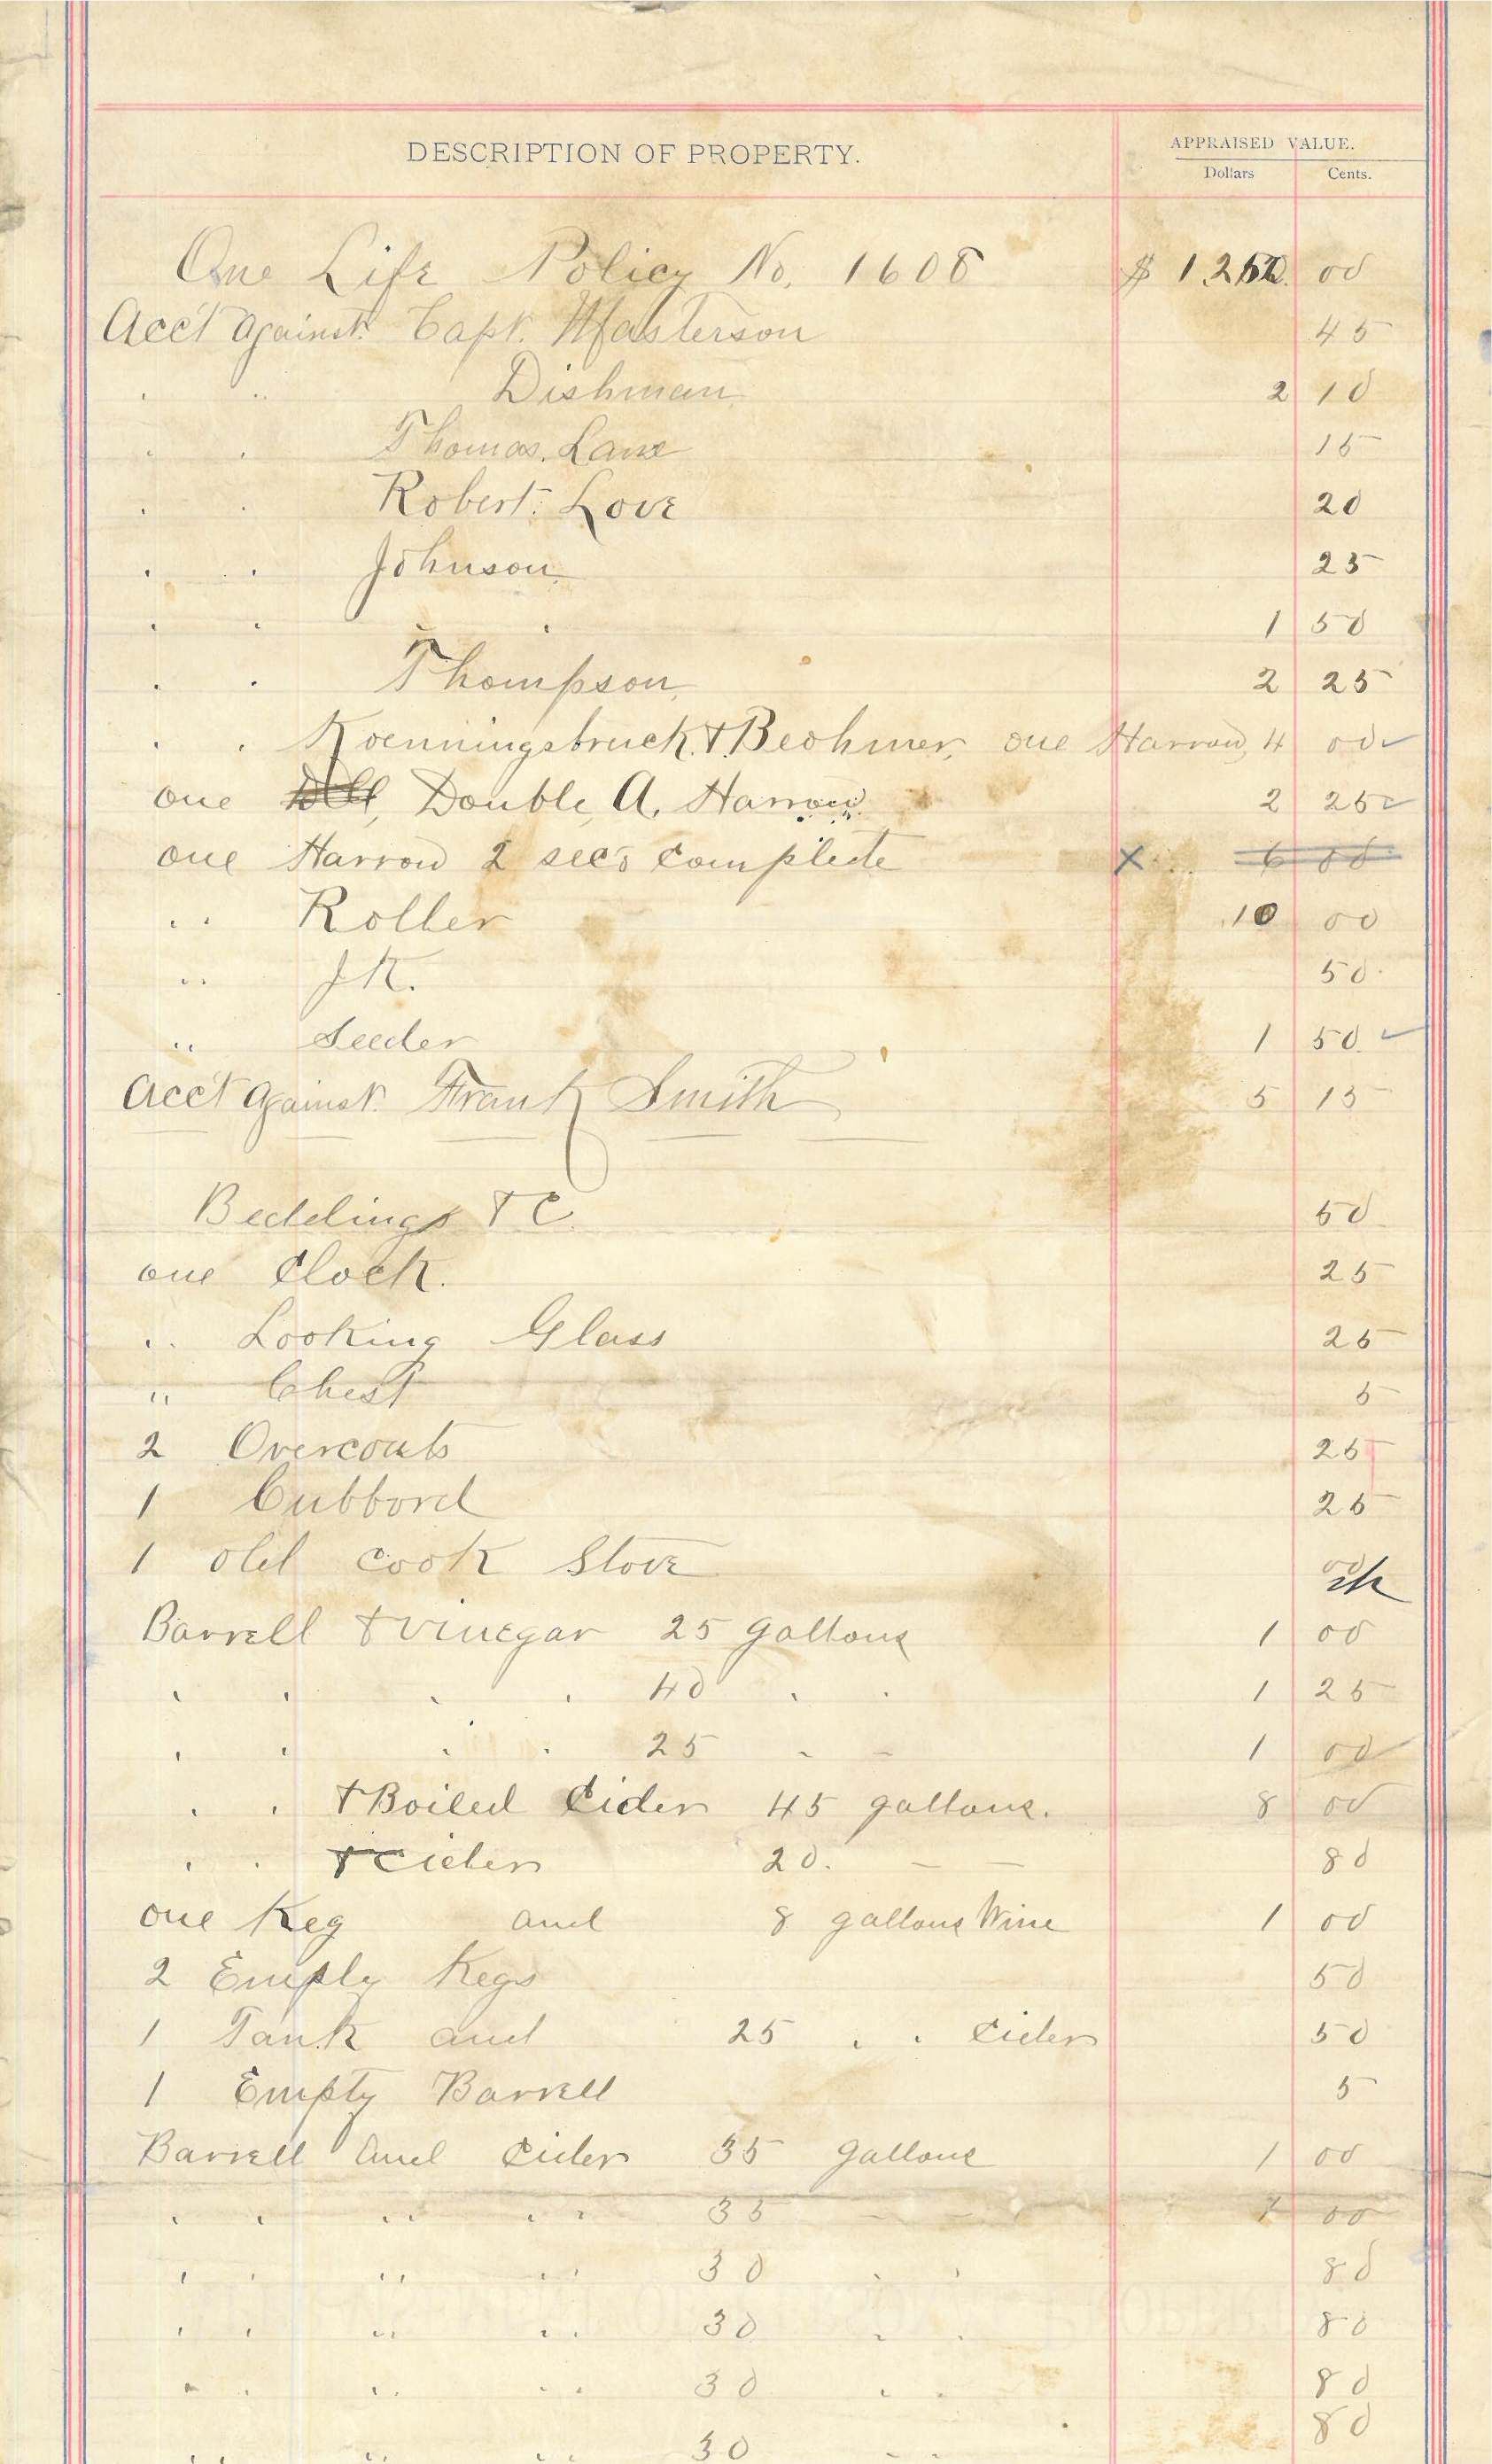 DESCRIPTION OF PROPERTY.
APPRAISED VALUE.
Dollars Cents.
One Life Policy No. 1608 $ 00
Acc't against Capt. Masterson 45
. .. Dishman 2 10
. . Thomas. Lane 15
. . Robert. Love 20
. . Johnson 25
. . . 1 50
. . Thompson, 2 25
. . Koenningsbruck & Beohmer, one Harrow, 4 00 ✓
one Double, A. Harrow 2 25 ✓
one Harrow 2 sec's complete X 6 00
.. Roller 10 00
.. J K. 50
.. Seeder 1 50 ✓
Acc't against Frank Smith 5 15
Beddings & C. 50
one Clock. 25
.. Looking Glass 25
" Chest 5
2 Overcoats 25
1 Cubbord 25
1 old cook Stove
Barrell & vinegar 25 gallons 1 00
. . . . 40 . . 1 25
. . . . 25 - - 1 00
. . & Boiled Cider 45 gallons. 8 00
. . & Cider 20. — — 80
one Keg and 8 gallons Wine 1 00
2 Empty Kegs 50
1 Tank and 25 . . Cider 50
1 Empty Barrell 5
Barrell and Cider 35 gallons 1 00
. . .. .. 35 - - 1 00
. . .. .. 30 . . 80
. . .. .. 30 . . 80
. . .. .. 30 . . 80
.. .. .. 30 .. 80